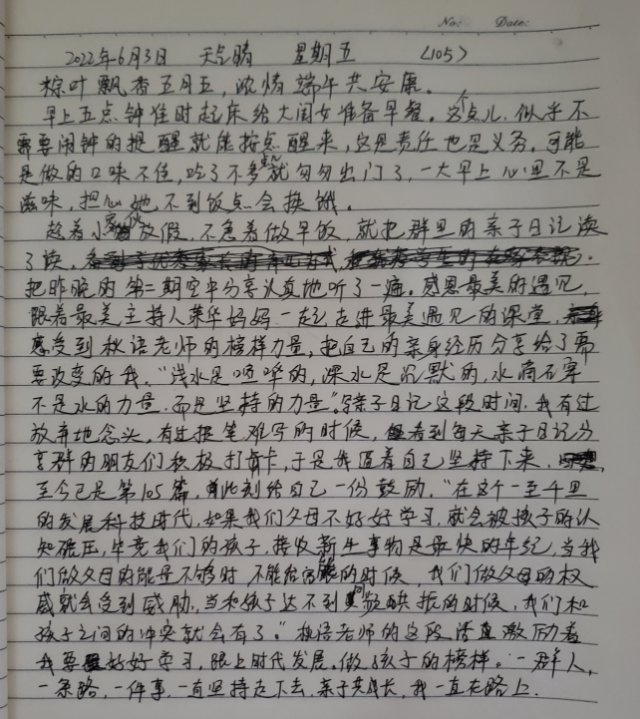 No: Date:
2022年6月3日 天气晴 星期五 (105)
粽叶飘香五月五，浓情端午共安康。
早上五点钟准时起床给大闺女准备早餐。这个点儿，似乎不
需要闹钟的提醒就能按点醒来，这是责任也是义务。可能
是做的口味不佳，吃了不多点儿就匆匆出门了，一大早上心里不是
滋味，担心她不到饭点会挨饿。
趁着小家伙放假，不急着做早饭，就把群里的亲子日记读
了读。
把昨晚的第二期空中分享认真地听了一遍。感恩最美的遇见，
跟着最美主持人荣华妈妈一起走进最美遇见的课堂，
感受到秋语老师的榜样力量，把自己的亲身经历分享给了需
要改变的我。“浅水是喧哗的，深水是沉默的，水滴石穿
不是水的力量，而是坚持的力量”。写亲子日记这段时间，我有过
放弃地念头，有过提笔难写的时候，但看到每天亲子日记分
享群的朋友们积极打卡，于是我逼着自己坚持下来，
至今已是第105篇，此刻给自己一份鼓励。“在这个一日千里
的发展科技时代，如果我们父母不好好学习，就会被孩子的认
知碾压，毕竟我们的孩子，接收新生事物是最快的年纪，当我
们做父母的能量不够时，不能的时候，我们做父母的权
威就会受到威胁，当和孩子达不到同频共振的时候，我们和
孩子之间的冲突就会有了。”秋语老师的这段话直激励着
我要好好学习，跟上时代发展，做孩子的榜样。一群人，
一条路，一件事，一直坚持走下去，亲子共成长，我一直在路上.